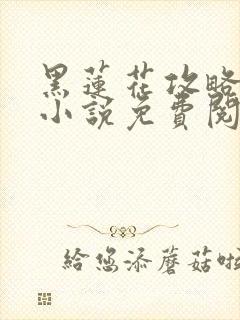 黑蓮花攻略
小說免費閱
給您添蘑菇啦